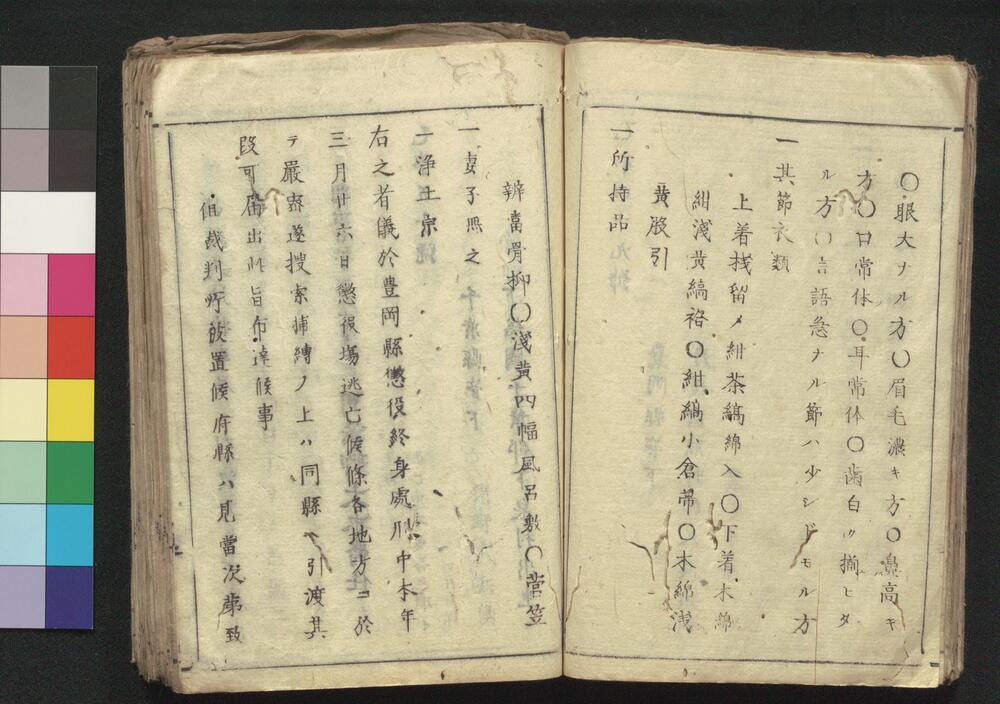 〇眼大ナル方〇眉毛濃キ方〇鼻高キ
方〇口常体〇耳常体〇歯白ク揃ヒタ
ル方〇言語急ナル節ハ少シドモル方
一其節衣類
上着棧留メ紺茶縞綿入〇下着木綿
紺淺黄縞袷〇紺縞小倉帯〇木綿浅
黄股引
一所持品
辨當骨抑〇淺黄四幅風呂敷〇菅笠
一妻子無之
一浄土宗
右之者儀於豊岡縣懲役終身處刑中本年
三月廿六日懲役場逃亡候條各地方ニ於
テ嚴密遂搜索捕縛ノ上ハ同縣ヘ引渡其
段可届出此旨布達候事
但裁判所被置候府縣ハ見當次第致